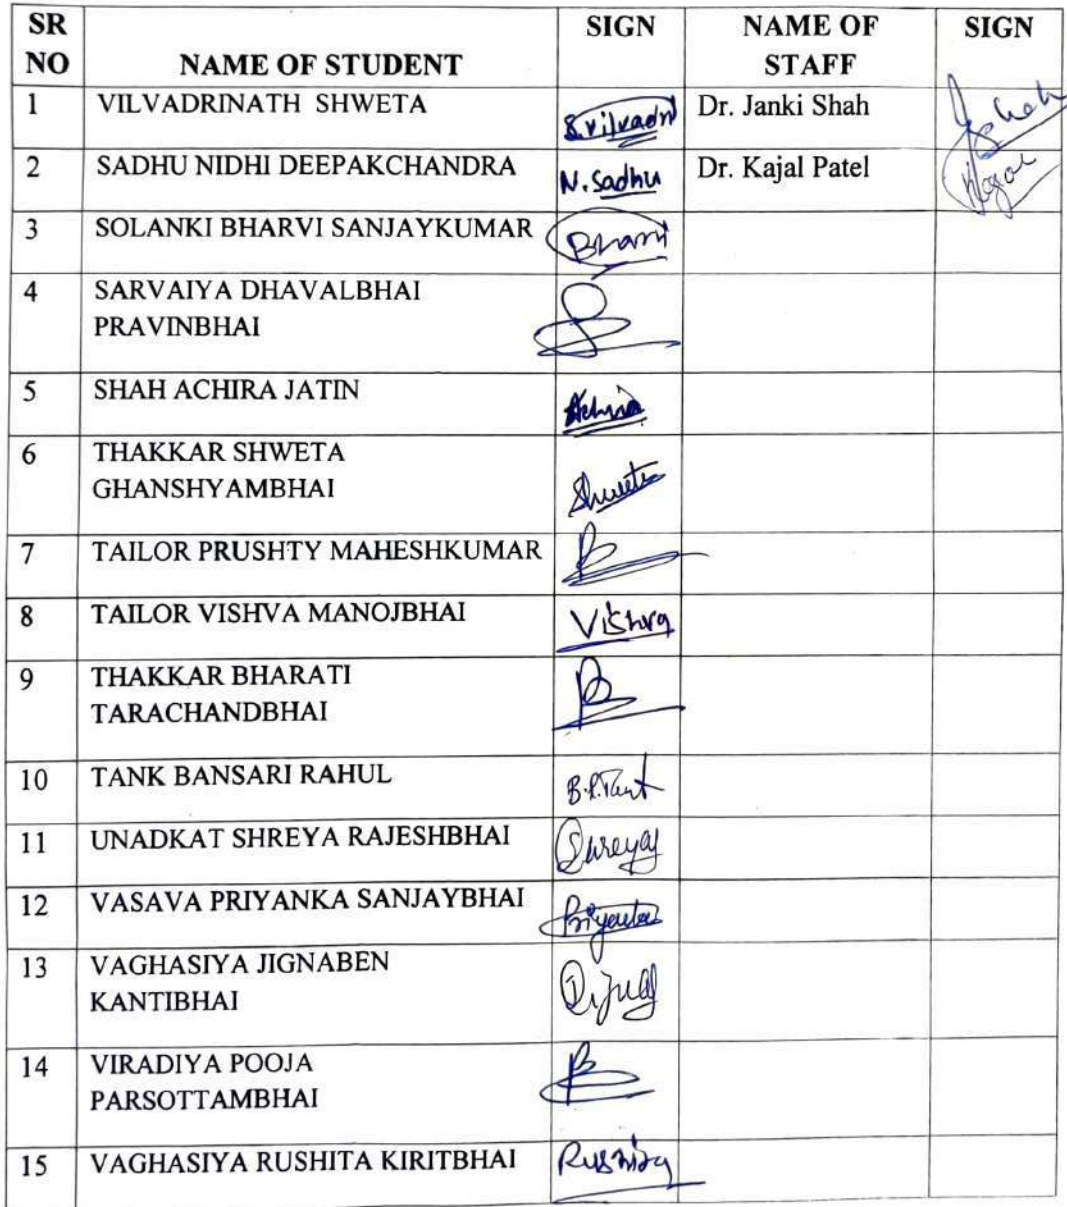 SR NO NAME OF STUDENT SIGN NAME OF STAFF SIGN
1 VILVADRINATH SHWETA S.Vilvadri Dr. Janki Shah
2 SADHU NIDHI DEEPAKCHANDRA N.Sadhu Dr. Kajal Patel
3 SOLANKI BHARVI SANJAYKUMAR
4 SARVAIYA DHAVALBHAI
PRAVINBHAI
5 SHAH ACHIRA JATIN
6 THAKKAR SHWETA
GHANSHYAMBHAI
7 TAILOR PRUSHTY MAHESHKUMAR
8 TAILOR VISHVA MANOJBHAI Vishva
9 THAKKAR BHARATI
TARACHANDBHAI
10 TANK BANSARI RAHUL
11 UNADKAT SHREYA RAJESHBHAI
12 VASAVA PRIYANKA SANJAYBHAI
13 VAGHASIYA JIGNABEN
KANTIBHAI
14 VIRADIYA POOJA
PARSOTTAMBHAI
15 VAGHASIYA RUSHITA KIRITBHAI